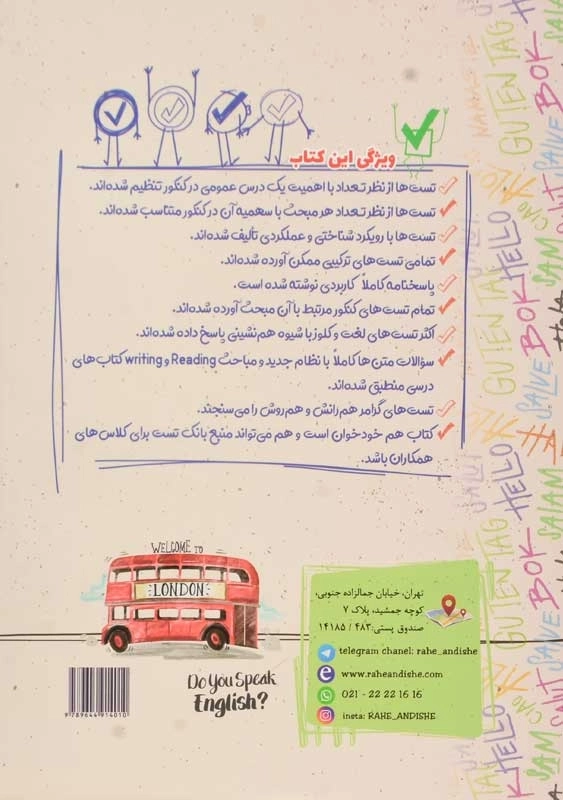 ویژگی این کتاب
تست‌ها از نظر تعداد با اهمیت یک درس عمومی در کنکور تنظیم شده‌اند.
تست‌ها از نظر تعداد هر مبحث با سهمیه آن در کنکور متناسب شده‌اند.
تست‌ها با رویکرد شناختی و عملکردی تألیف شده‌اند.
تمامی تست‌های ترکیبی ممکن آورده شده‌اند.
پاسخنامه کاملاً کاربردی نوشته شده است.
تمام تست‌های کنکور مرتبط با آن مبحث آورده شده‌اند.
اکثر تست‌های لغت و کلوز با شیوه هم‌نشینی پاسخ داده شده‌اند.
سؤالات متن‌ها کاملاً با نظام جدید و مباحث Reading و writing کتاب‌های
درسی منطبق شده‌اند.
تست‌های گرامر هم رانش و هم روش را می‌سنجند.
کتاب هم خودخوان است و هم می‌تواند منبع بانک تست برای کلاس‌های
همکاران باشد.
WELCOME TO
LONDON
Do You Speak
English?
9 789644 914010
تهران، خیابان جمالزاده جنوبی،
کوچه جمشید، پلاک ۷
صندوق پستی: ۴۸۳ / ۱۴۱۸۵
telegram chanel: rahe_andishe
www.raheandishe.com
021 - 22 22 16 16
insta: RAHE_ANDISHE
GUTEN TAG
BOK
HELLO
SALVE
CIAO
SALAM
SALUT